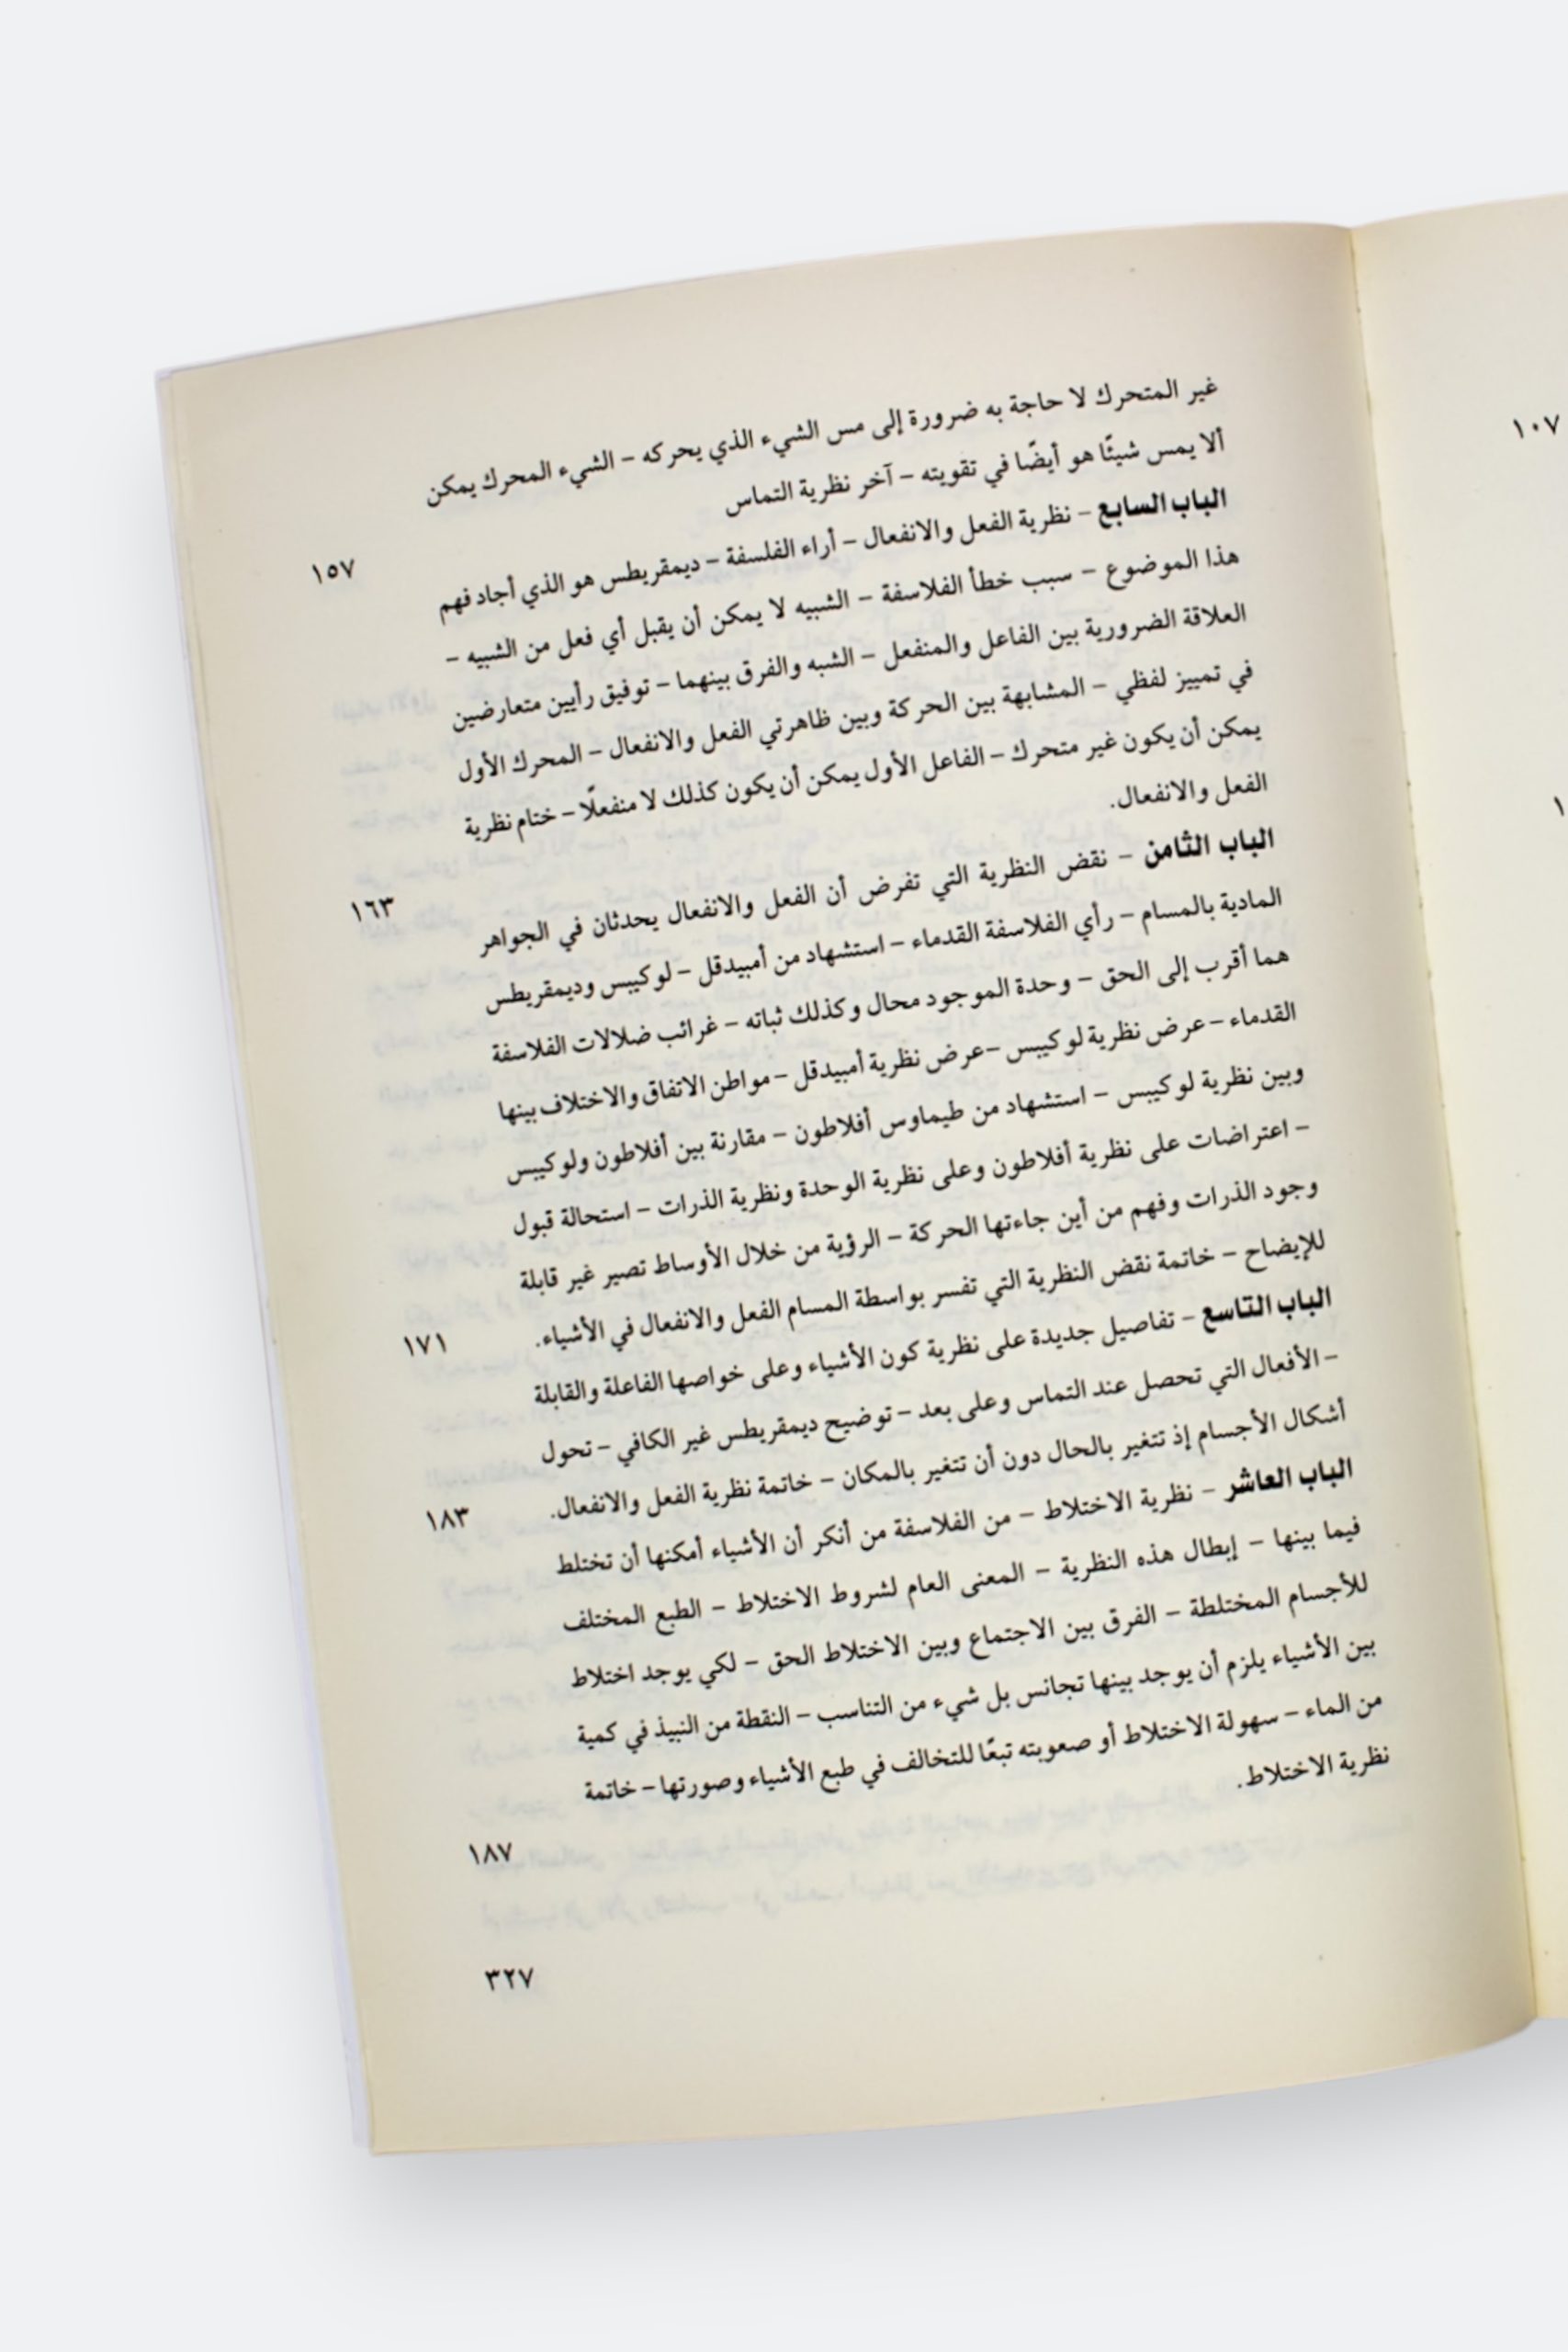 غير المتحرك لا حاجة به ضرورة إلى مس الشيء الذي يحركه – الشيء المحرك يمكن
ألا يمس شيئًا هو أيضًا في تقويته – آخر نظرية التماس
١٥٧
الباب السابع – نظرية الفعل والانفعال – أراء الفلسفة – ديمقريطس هو الذي أجاد فهم
هذا الموضوع – سبب خطأ الفلاسفة – الشبيه لا يمكن أن يقبل أي فعل من الشبيه –
العلاقة الضرورية بين الفاعل والمنفعل – الشبه والفرق بينهما – توفيق رأيين متعارضين
في تمييز لفظي – المشابهة بين الحركة وبين ظاهرتي الفعل والانفعال – المحرك الأول
يمكن أن يكون غير متحرك – الفاعل الأول يمكن أن يكون كذلك لا منفعلًا – ختام نظرية
الفعل والانفعال.
١٦٣
الباب الثامن – نقض النظرية التي تفرض أن الفعل والانفعال يحدثان في الجواهر
المادية بالمسام – رأي الفلاسفة القدماء – استشهاد من أمبيدقل – لوكيبس وديمقريطس
هما أقرب إلى الحق – وحدة الموجود محال وكذلك ثباته – غرائب ضلالات الفلاسفة
القدماء – عرض نظرية لوكيبس –عرض نظرية أمبيدقل – مواطن الاتفاق والاختلاف بينها
وبين نظرية لوكيبس – استشهاد من طيماوس أفلاطون – مقارنة بين أفلاطون ولوكيبس
– اعتراضات على نظرية أفلاطون وعلى نظرية الوحدة ونظرية الذرات – استحالة قبول
وجود الذرات وفهم من أين جاءتها الحركة – الرؤية من خلال الأوساط تصير غير قابلة
للإيضاح – خاتمة نقض النظرية التي تفسر بواسطة المسام الفعل والانفعال في الأشياء.
١٧١
الباب التاسع – تفاصيل جديدة على نظرية كون الأشياء وعلى خواصها الفاعلة والقابلة
– الأفعال التي تحصل عند التماس وعلى بعد – توضيح ديمقريطس غير الكافي – تحول
أشكال الأجسام إذ تتغير بالحال دون أن تتغير بالمكان – خاتمة نظرية الفعل والانفعال.
١٨٣
الباب العاشر – نظرية الاختلاط – من الفلاسفة من أنكر أن الأشياء أمكنها أن تختلط
فيما بينها – إبطال هذه النظرية – المعنى العام لشروط الاختلاط – الطبع المختلف
للأجسام المختلطة – الفرق بين الاجتماع وبين الاختلاط الحق – لكي يوجد اختلاط
بين الأشياء يلزم أن يوجد بينها تجانس بل شيء من التناسب – النقطة من النبيذ في كمية
من الماء – سهولة الاختلاط أو صعوبته تبعًا للتخالف في طبع الأشياء وصورتها – خاتمة
نظرية الاختلاط.
١٨٧
٣٢٧
١٠٧